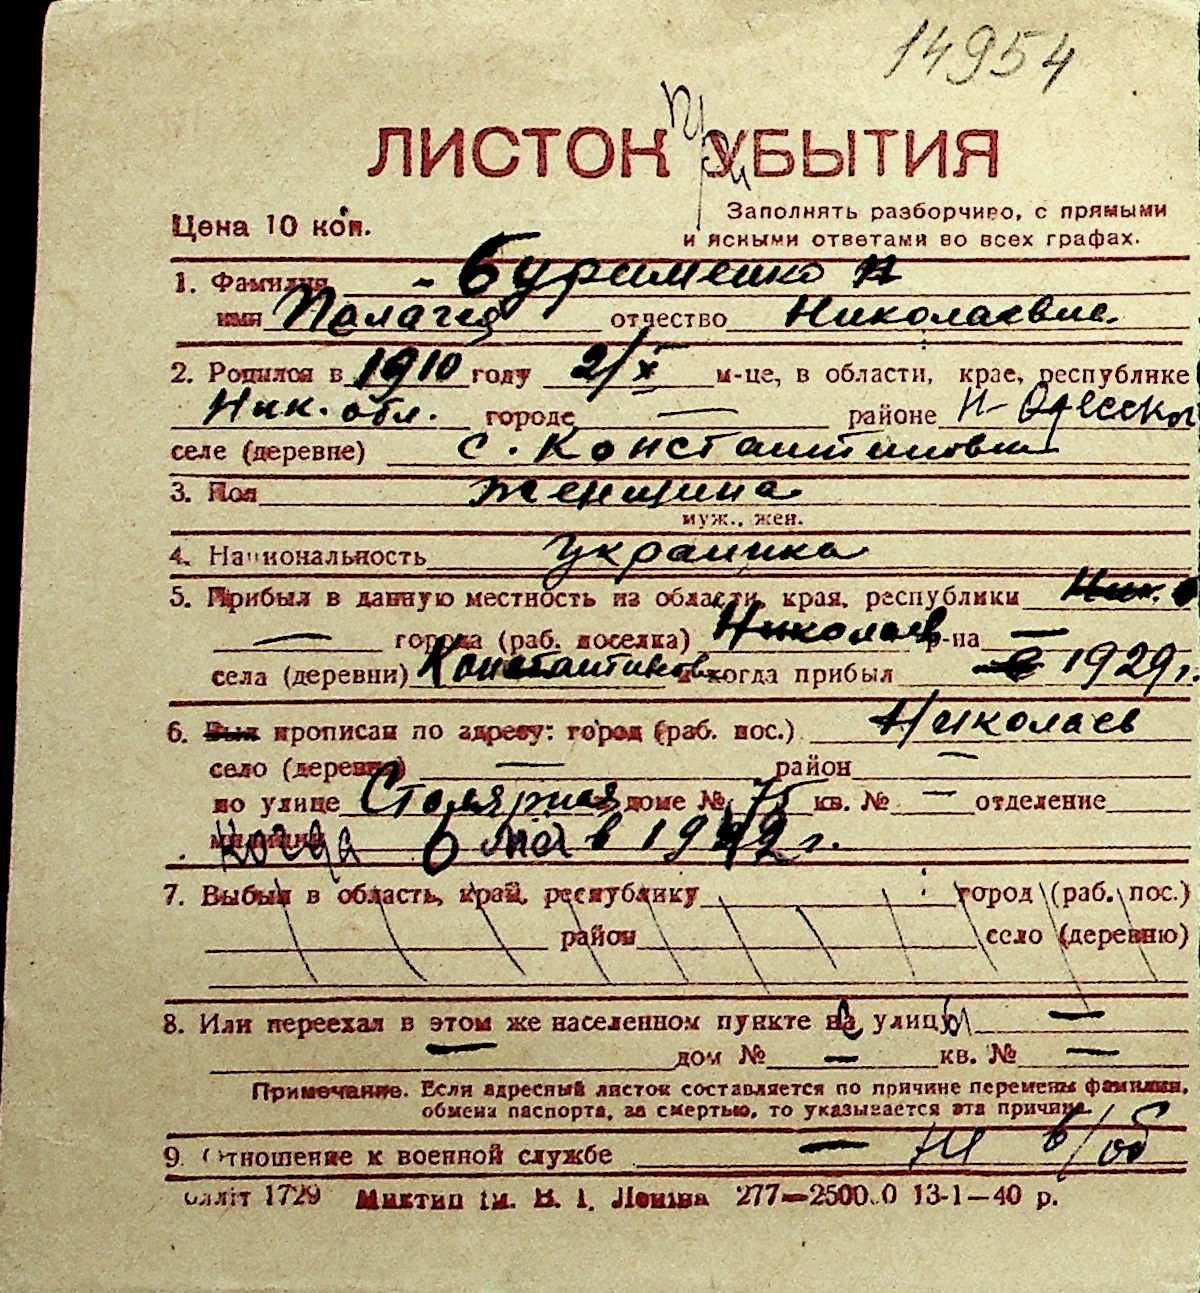 14954
ЛИСТОК УБЫТИЯ
при
Цена 10 коп.
Заполнять разборчиво, с прямыми
и ясными ответами во всех графах.
1. Фамилия - Буримешко
имя Пелагея отчество Николаевна
2. Родился в 1910 году 2/X м-це, в области, крае, республике
Ник. обл. городе — районе Н-Одесский
селе (деревне) с. Константиновка
3. Пол женщина
муж., жен.
4. Национальность украинка
5. Прибыл в данную местность из области, края, республики Ник. о
— города (раб. поселка) Николаев р-на —
села (деревни) Константиновка и когда прибыл с 1929 г.
6. Был прописан по адресу: город (раб. пос.) Николаев
село (деревня) — район —
по улице Столярная доме № 75 кв. № — отделение
милиции когда 6 мая в 1942 г.
7. Выбыл в область, край, республику город (раб. пос.)
район село (деревню)
8. Или переехал в этом же населенном пункте на улицу —
— дом № — кв. № —
Примечание. Если адресный листок составляется по причине перемены фамилии,
обмена паспорта, за смертью, то указывается эта причина.
9. Отношение к военной службе — не в/об
1729 Миктип ім. В. І. Леніна 277—2500.0 13-1—40 р.